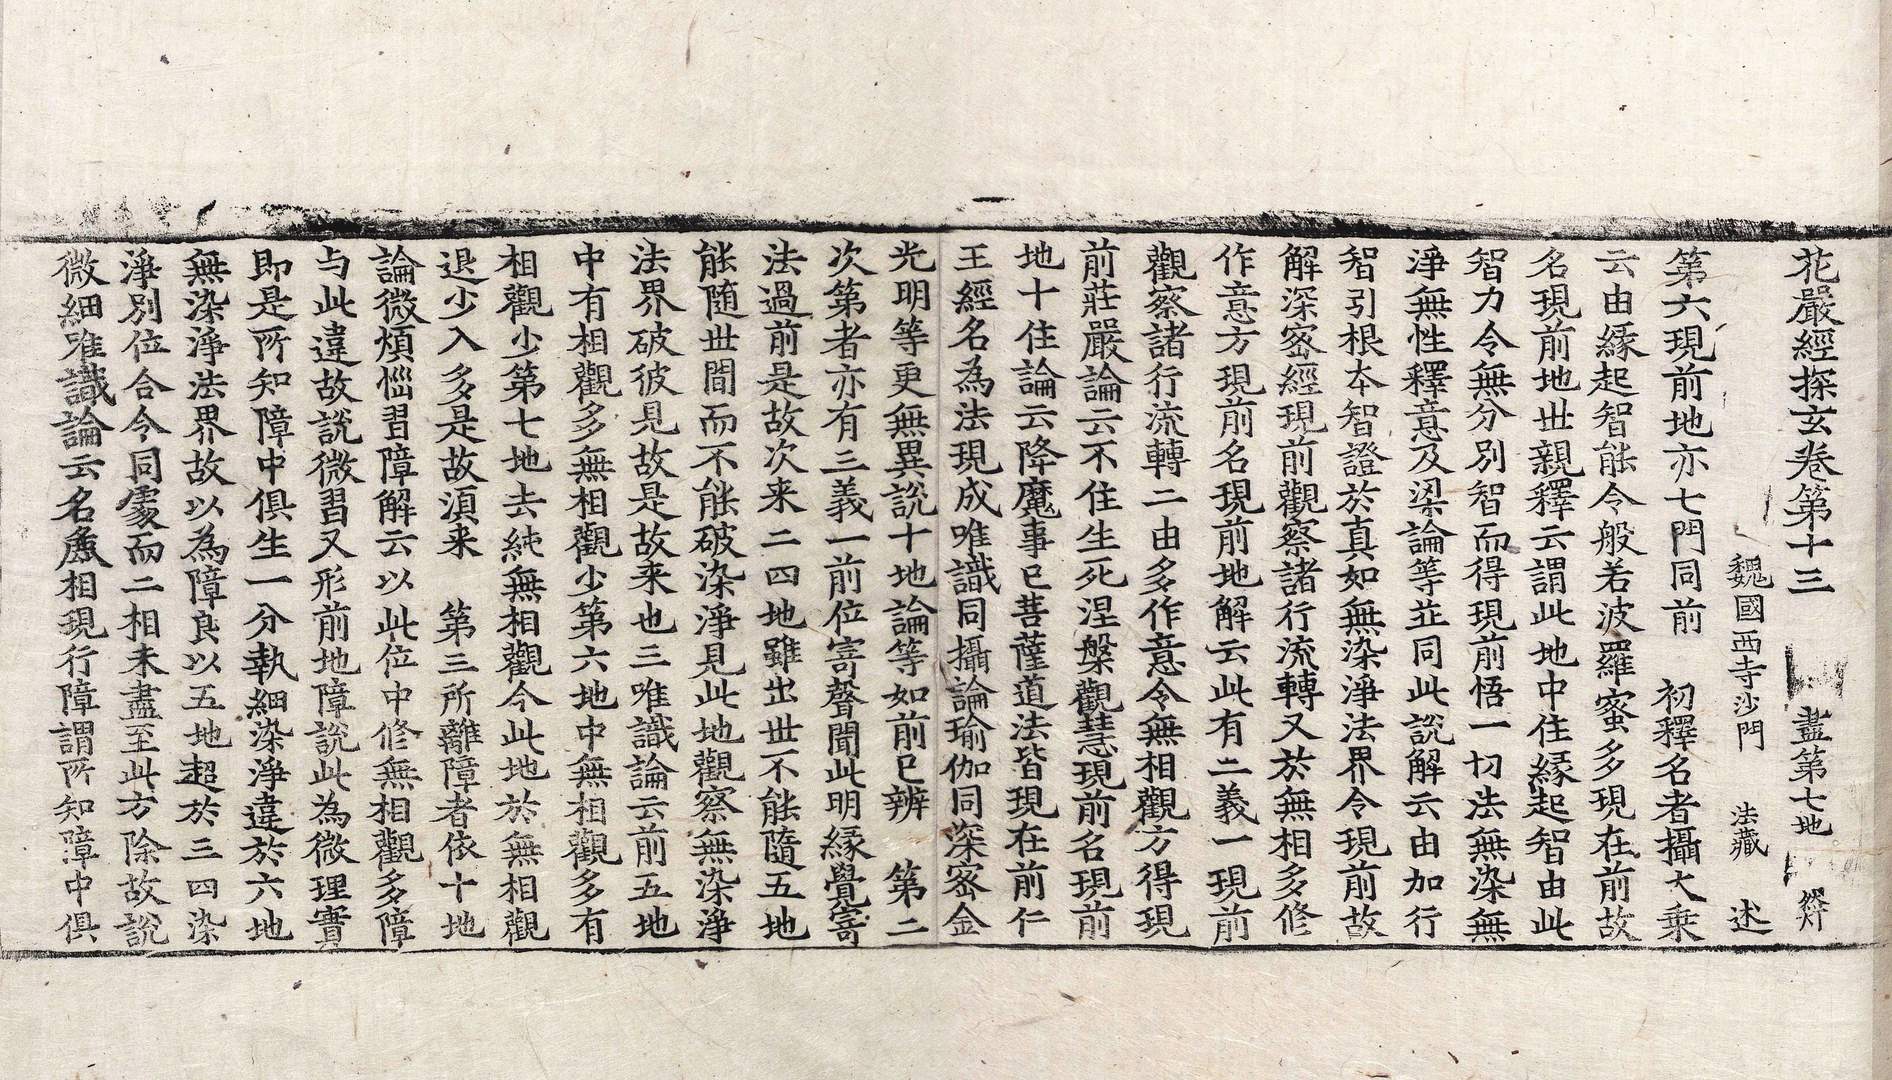 花嚴經探玄卷第十三　盡第七地
魏國西寺沙門　法藏　述
第六現前地亦七門同前　初釋名者攝大乘
云由緣起智能令般若波羅蜜多現在前故
名現前地世親釋云謂此地中住緣起智由此
智力令無分別智而得現前悟一切法無染無
淨無性釋意及梁論等並同此說解云由加行
智引根本智證於真如無染淨法界令現前故
解深密經現前觀察諸行流轉又於無相多修
作意方現前名現前地解云此有二義一現前
觀察諸行流轉二由多作意令無相觀方得現
前莊嚴論云不住生死涅槃觀慧現前名現前
地十住論云降魔事已菩薩道法皆現在前仁
王經名為法現成唯識同攝論瑜伽同深密金
光明等更無異說十地論等如前已辨　第二
次第者亦有三義一前位寄聲聞此明緣覺寄
法過前是故次来二四地雖出世不能隨五地
能隨世間而不能破染淨見此地觀察無染淨
法界破彼見故是故来也三唯識論云前五地
中有相觀多無相觀少第六地中無相觀多有
相觀少第七地去純無相觀今此地於無相觀
退少入多是故須来　第三所離障者依十地
論微煩惱習障解云以此位中修無相觀多障
与此違故說微習又形前地障說此為微理實
即是所知障中俱生一分執細染淨違於六地
無染淨法界故以為障良以五地超於三四染
淨別位合令同處而二相未盡至此方除故說
微細唯識論云名麁相現行障謂所知障中俱